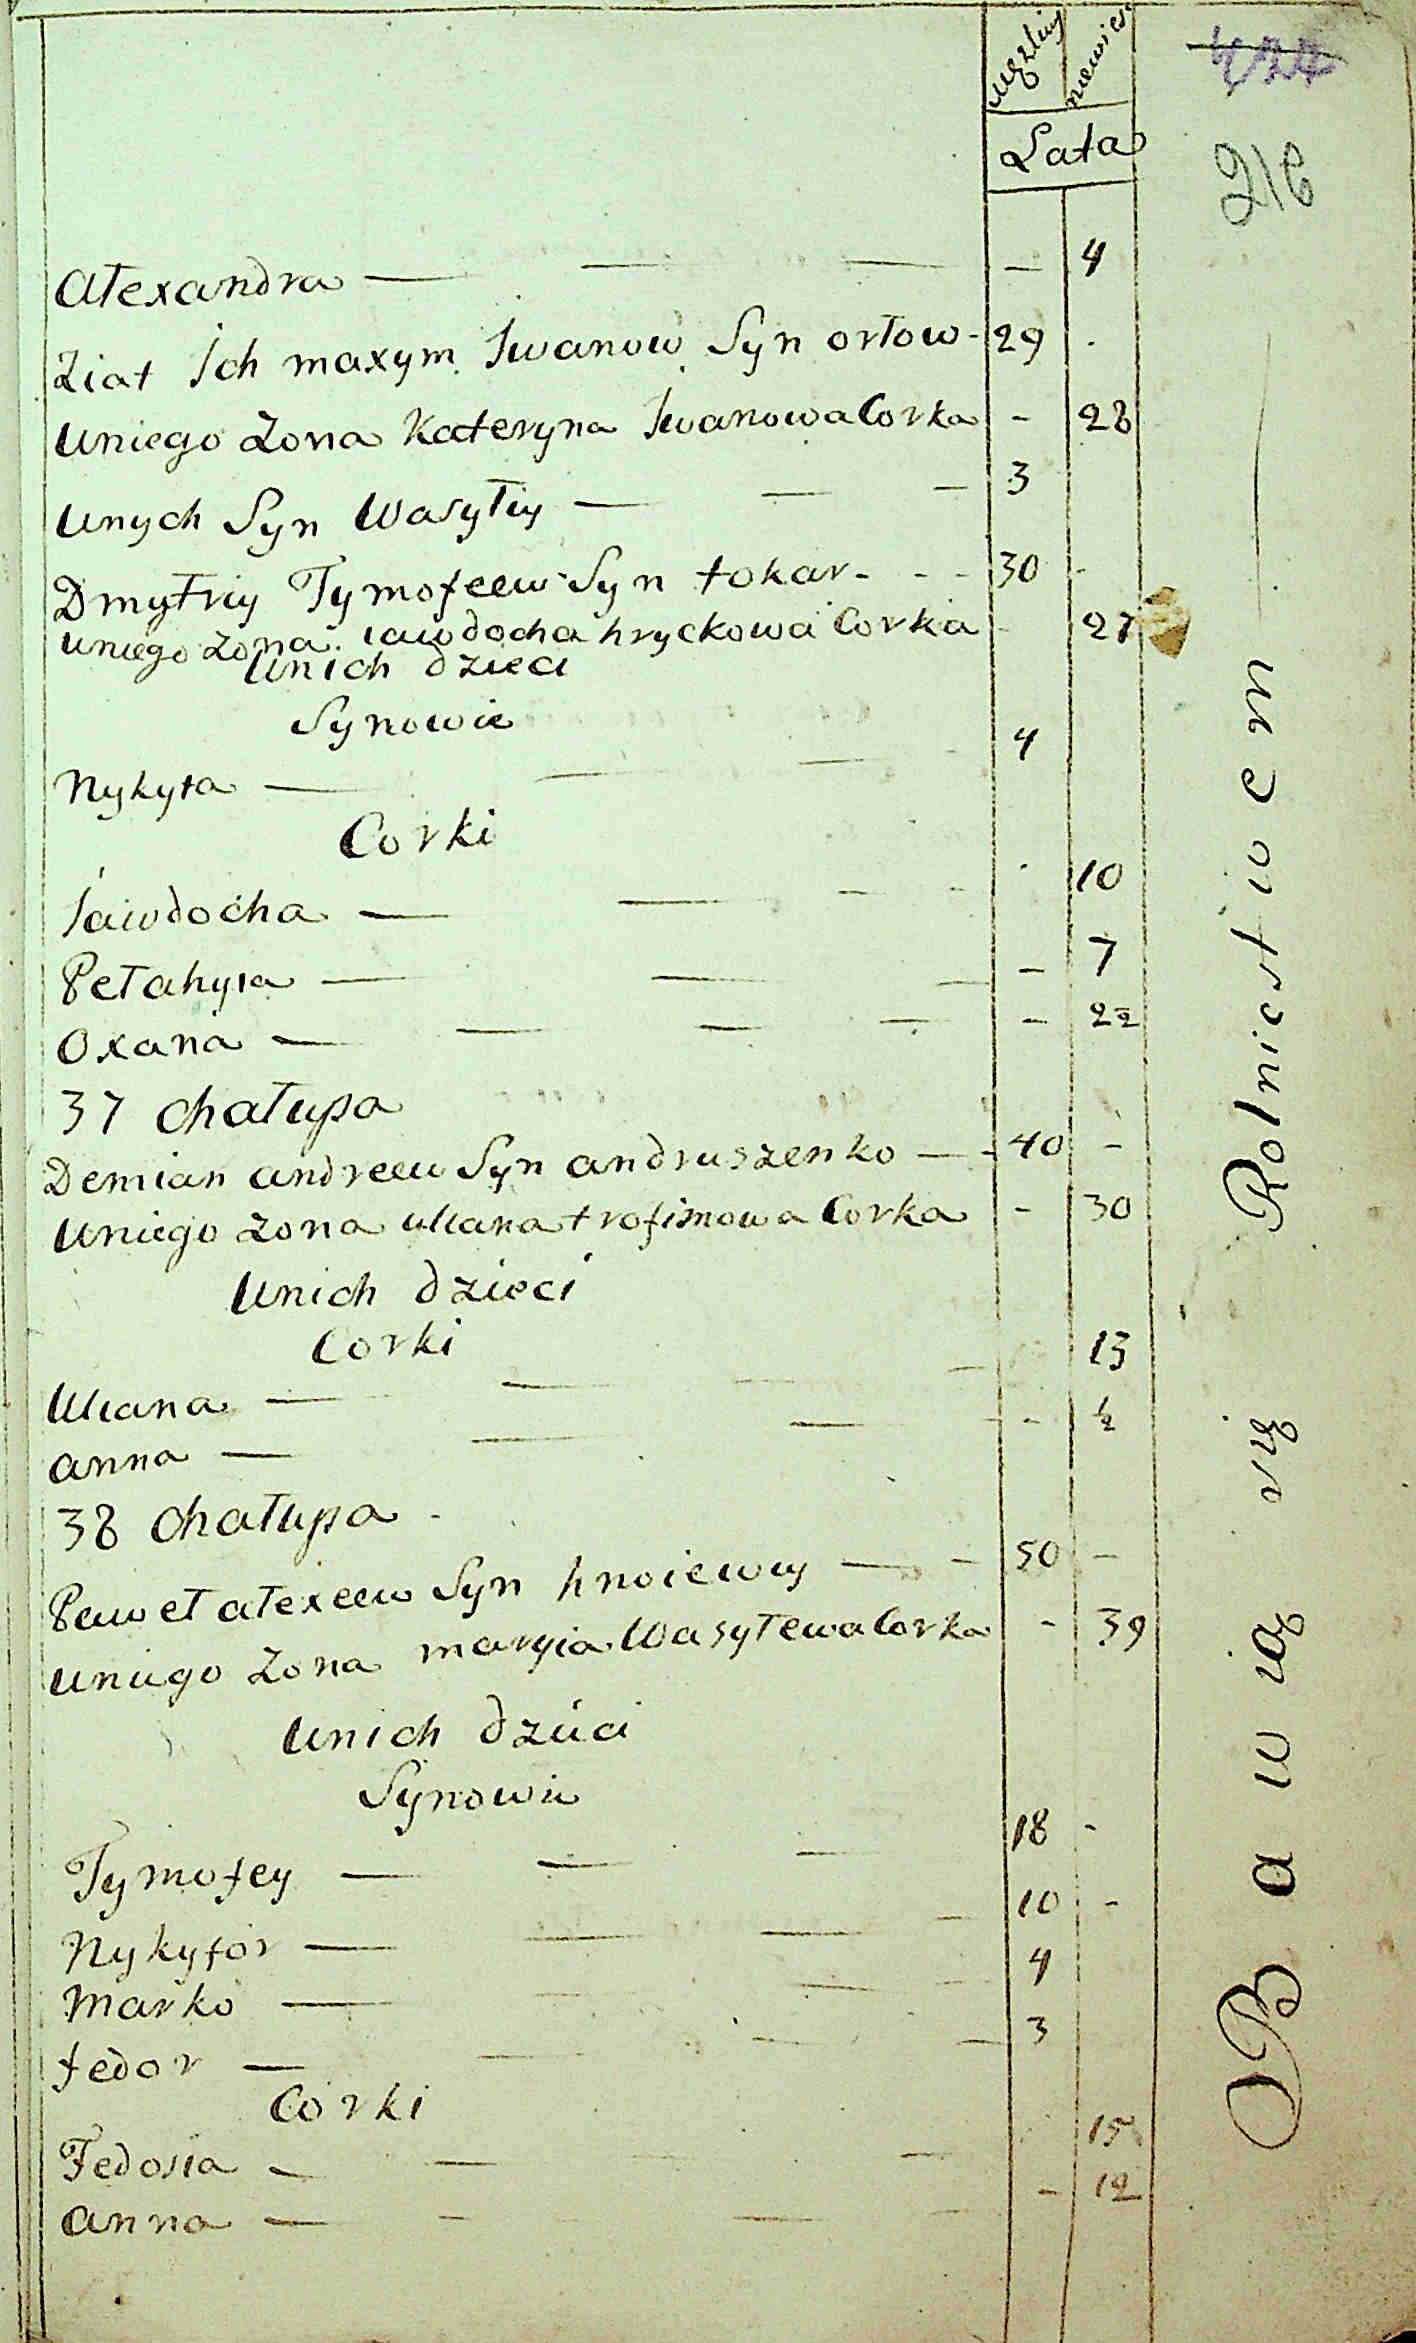 Męzkiey niewies:
Lata
216
Alexandra — — — — 4
Ziat Ich maxym Iwanow Syn orłow - 29 .
Uniego Zona Kateryna Iwanowa Corka - 28
Unych Syn Wasyłiy — — — 3
Dmytriy Tymofeew Syn tokar - - - 30 -
Uniego Zona iawdocha hryckowa Corka - 27
Unich dzieci
Synowie
Nykyta — — — 4
Corki
Iawdocha — — — - . 10
Pełahyia — — — - 7
Oxana — — — — - 2½
37 chałupa
Demian andreew Syn andruszenko — - 40 -
Uniego Zona uliana trofimowa Corka - 30
Unich dzieci
Corki
Uliana — — — — 13
anna — — — - ½
38 chałupa
Paweł ałexeew Syn hnoiewy — - 50 -
Uniego Zona maryia Wasylewa Corka - 39
Unich dzieci
Synowie
Tymofey — — — 18 -
Nykyfor — — — — 10 -
Marko — — — — 4
fedor — — — — 3
Corki
Fedosia — — — 15
anna — — — — - 12
Bawią się Rolnictwem